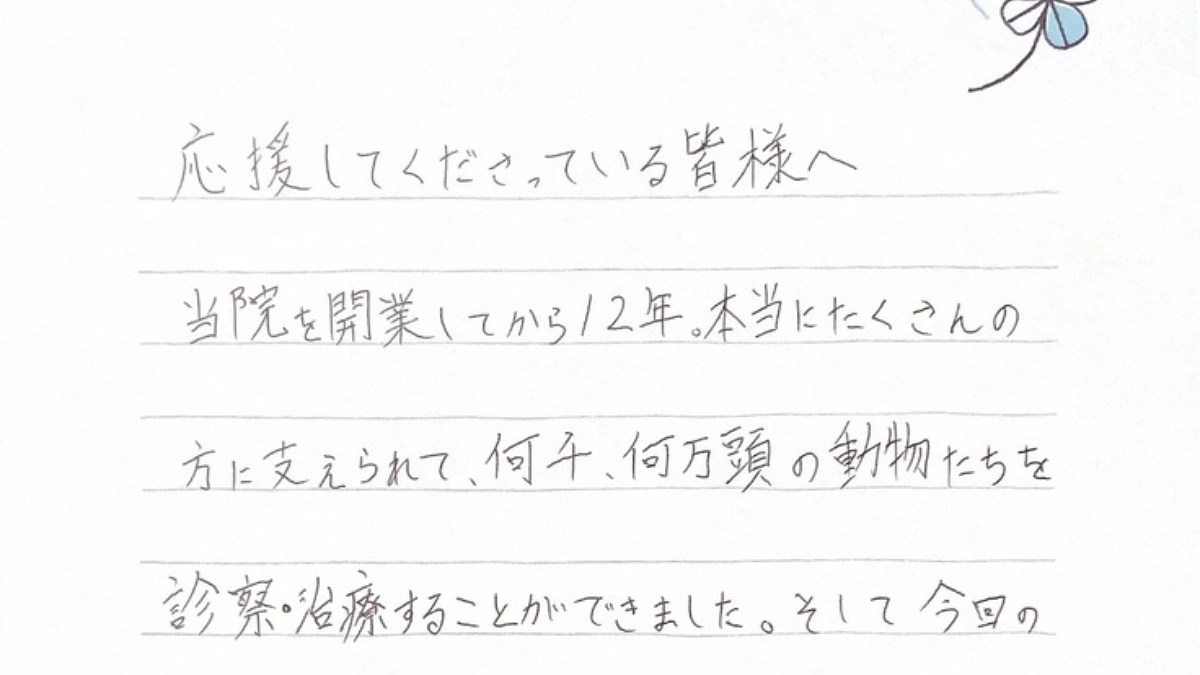 応援してくださっている皆様へ
当院を開業してから12年。本当にたくさんの
方に支えられて、何千、何万頭の動物たちを
診察・治療することができました。そして今回の